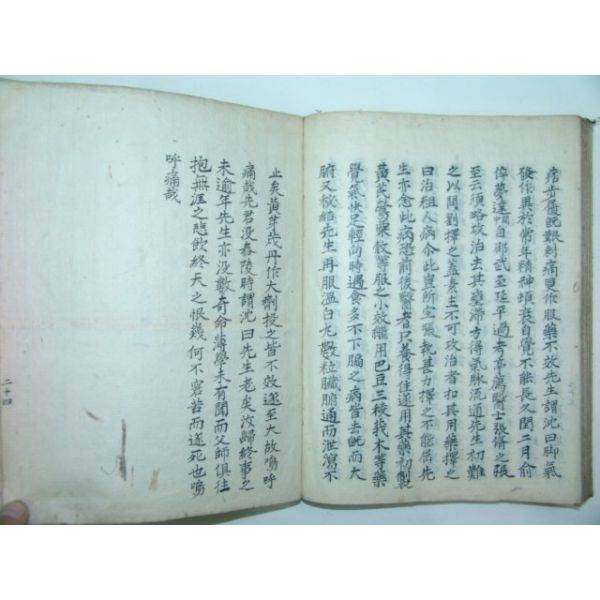 痞步履說艱刺痛更作服藥不效先生謂沈曰脚氣
發作異於常年精神頓衰自覺不能長久閏二月俞
偉夢達自邵武至延平過考亭薦醫士張修之張
至云須略攻治去其壅滯方得氣脉流通先生初難
之以問劉擇之蓋養生不可攻治者扣其用藥擇之
曰治粗人病余此豈所宜張執甚力擇之不能屈先
生亦念此病恐前後醫者只養得住遂用其藥初製
黃芪罌粟殼等服之小效繼用巴豆三棱莪朮等藥
覺氣快足輕向時遇食多不下膈之病皆去旣而大
腑又秘結先生再服溫白丸數粒臟腑通而泄瀉不
止矣黃芽歲丹作大劑投之皆不效遂至大故嗚呼
痛哉先君没舂陵時謂沈曰先生老矣汝歸終事之
未逾年先生亦没數奇命薄學未有聞而父師俱往
抱無涯之悲飲終天之恨幾何不窮苦而遂死也嗚
呼痛哉
二十四